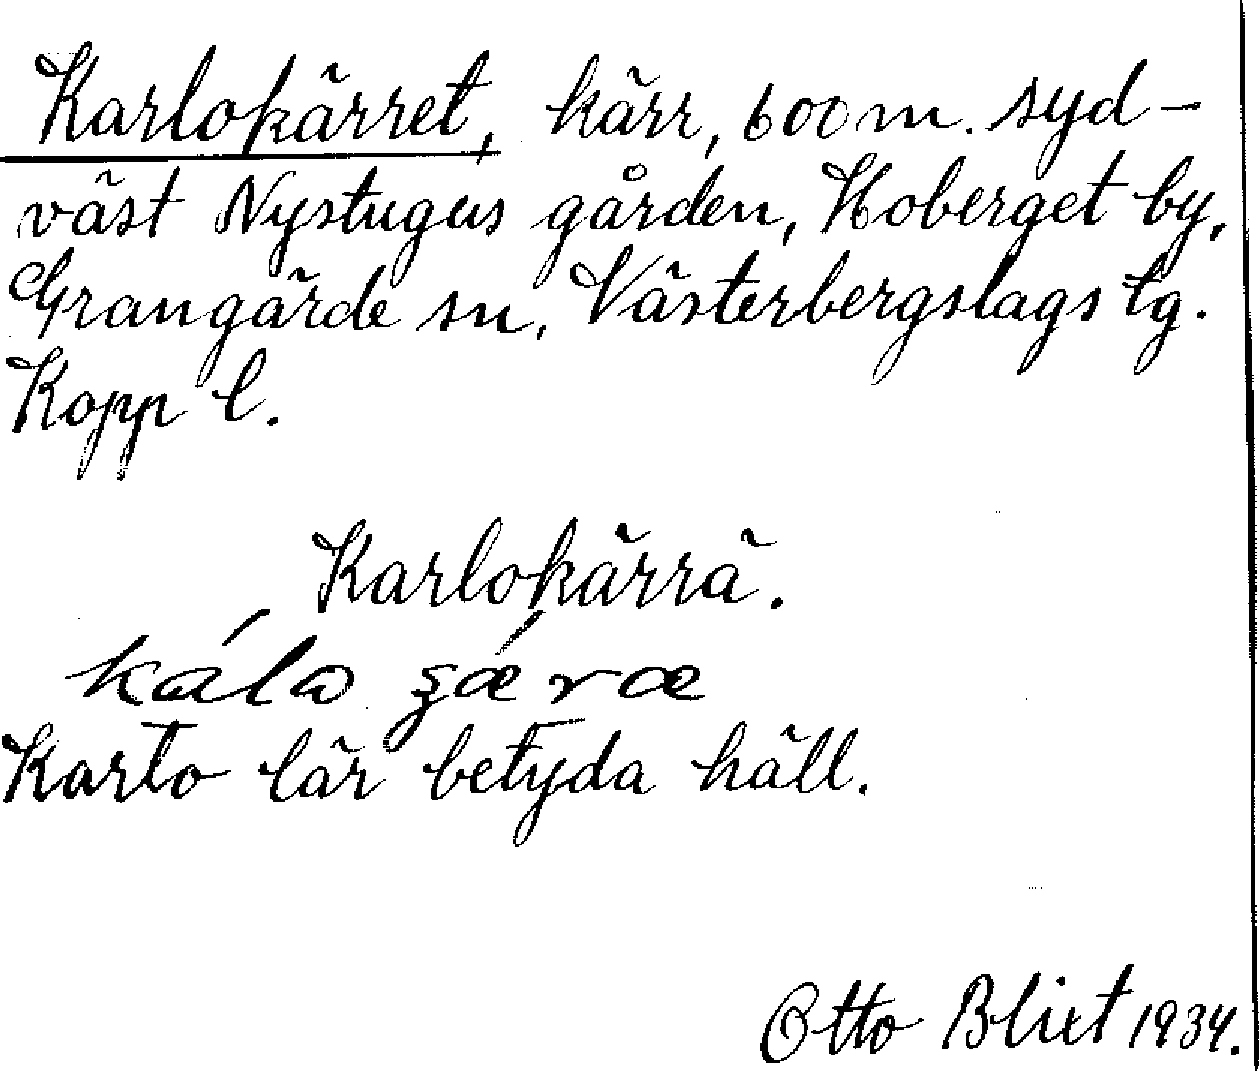 Karlokärret, kärr, 600 m. syd-
väst Nystugus gården, Hoberget by,
Grangärde sn, Västerbergslags tg.
Kopp l.
Karlokärrä.
Karto lär betyda häll.
Otto Blixt 1934.